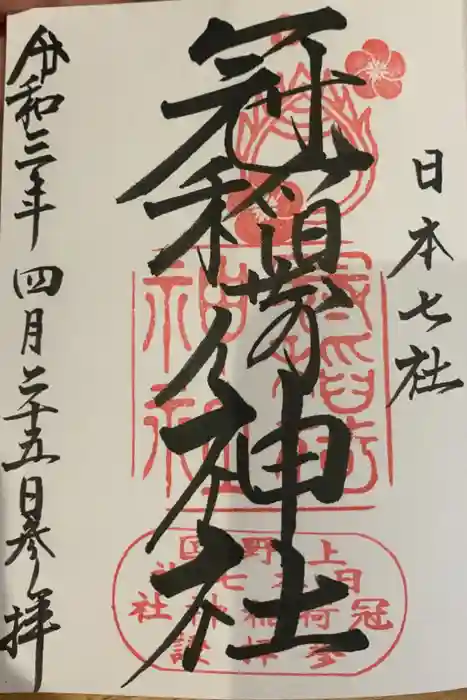 日本七社
冠稲荷神社
令和三年四月二十五日参拝
上野国
日本七社
冠稲荷神社
参拝證